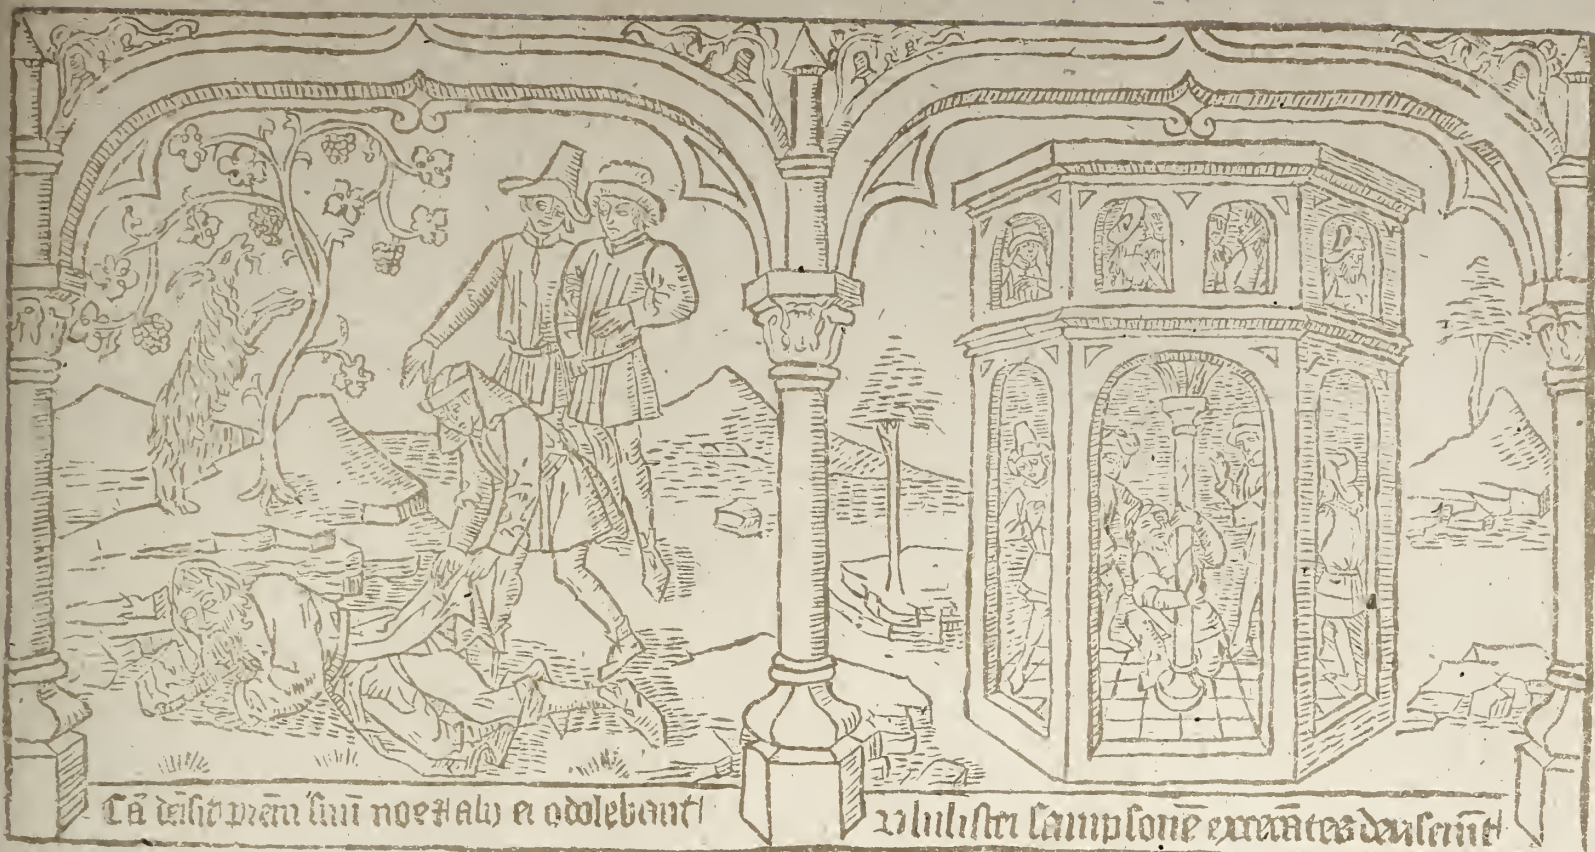 Cā dēsit p̄rēm suū noe ⁊ alij ei ꝯdolebant
Philistei sampsonē excecātes deriserūt